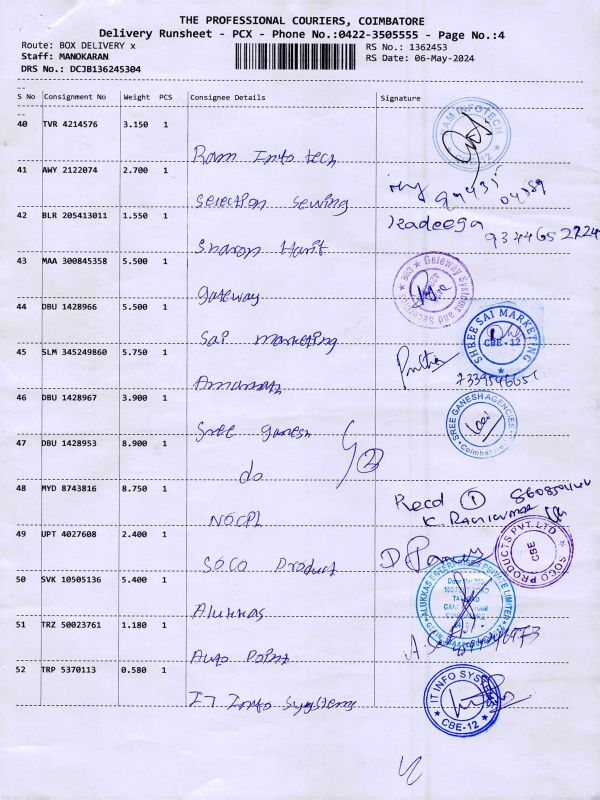 THE PROFESSIONAL COURIERS, COIMBATORE
Delivery Runsheet - PCX - Phone No.:0422-3505555 - Page No.:4
Route: BOX DELIVERY x
RS No.: 1362453
Staff: MANOKARAN
RS Date: 06-May-2024
DRS No.: DCJB136245304
S No Consignment No Weight PCS Consignee Details Signature
40 TVR 4214576 3.150 1
Ram Info tech
41 AWY 2122074 2.700 1
Selection Sewing
42 BLR 205413011 1.550 1
9344652224
Sharon Harit
43 MAA 300845358 5.500 1
Gateway Systems and Securities CBE
gateway
44 DBU 1428966 5.500 1
SHREE SAI MARKETING CBE-12
Sai marketing
45 SLM 345249860 5.750 1
46 DBU 1428967 3.900 1
SREE GANESH AGENCIES Coimbatore
Sree ganesh
47 DBU 1428953 8.900 1
do
2
48 MYD 8743816 8.750 1
Recd 1
NGCPL
49 UPT 4027608 2.400 1
SOCO PRODUCTS PVT. LTD CBE
SOCO Product
50 SVK 10505136 5.400 1
ALUKKAS ENTERPRISES PRIVATE LIMITED
Alukkas
51 TRZ 50023761 1.180 1
Auto Point
52 TRP 5370113 0.580 1
IT INFO SYSTEMS CBE-12
IT Info Sysstems